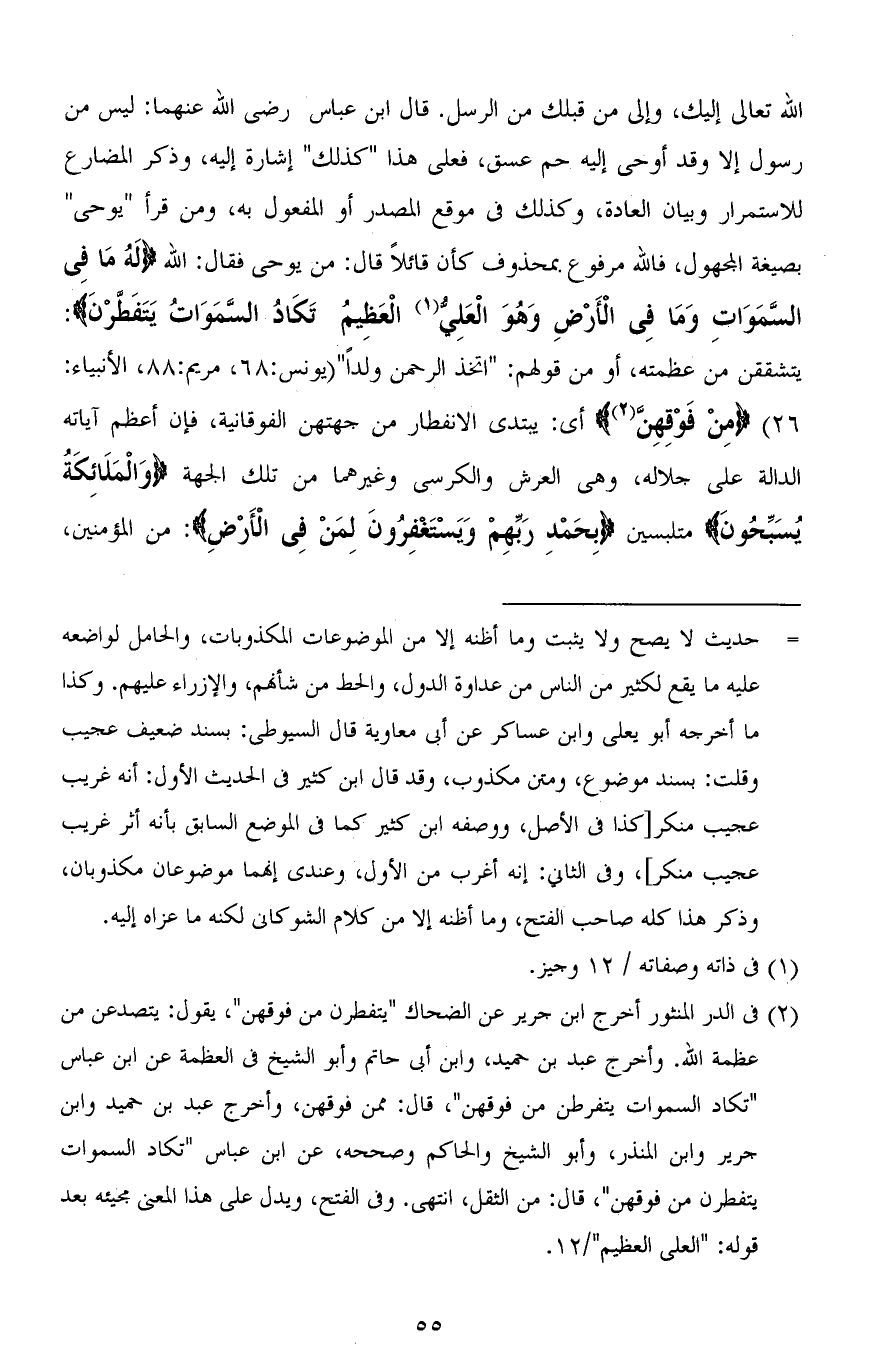 الله تعالى إليك، وإلى من قبلك من الرسل. قال ابن عباس رضى الله عنهما: ليس من
رسول إلا وقد أوحى إليه حم عسق، فعلى هذا "كذلك" إشارة إليه، وذكر المضارع
للاستمرار وبيان العادة، وكذلك فى موقع المصدر أو المفعول به، ومن قرأ "يوحى"
بصيغة المجهول، فالله مرفوع بمحذوف كأن قائلاً قال: من يوحى فقال: الله ﴿لَهُ مَا فِى
السَّمَوَاتِ وَمَا فِى الْأَرْضِ وَهُوَ الْعَلِيُّ(١) الْعَظِيمُ تَكَادُ السَّمَوَاتُ يَتَفَطَّرْنَ﴾:
يتشققن من عظمته، أو من قولهم: "اتخذ الرحمن ولداً"(يونس:٦٨، مريم:٨٨، الأنبياء:
٢٦) ﴿مِنْ فَوْقِهِنَّ(٢)﴾ أى: يبتدى الانفطار من جهتهن الفوقانية، فإن أعظم آياته
الدالة على جلاله، وهى العرش والكرسى وغيرهما من تلك الجهة ﴿وَالْمَلَائِكَةُ
يُسَبِّحُونَ﴾ متلبسين ﴿بِحَمْدِ رَبِّهِمْ وَيَسْتَغْفِرُونَ لِمَنْ فِى الْأَرْضِ﴾: من المؤمنين،
= حديث لا يصح ولا يثبت وما أظنه إلا من الموضوعات المكذوبات، والحامل لواضعه
عليه ما يقع لكثير من الناس من عداوة الدول، والحط من شأنهم، والإزراء عليهم. وكذا
ما أخرجه أبو يعلى وابن عساكر عن أبى معاوية قال السيوطى: بسند ضعيف عجيب
وقلت: بسند موضوع، ومتن مكذوب، وقد قال ابن كثير فى الحديث الأول: أنه غريب
عجيب منكر[كذا فى الأصل، ووصفه ابن كثير كما فى الموضع السابق بأنه أثر غريب
عجيب منكر]، وفى الثاني: إنه أغرب من الأول، وعندى إنهما موضوعان مكذوبان،
وذكر هذا كله صاحب الفتح، وما أظنه إلا من كلام الشوكانى لكنه ما عزاه إليه.
(١) فى ذاته وصفاته / ١٢ وجيز.
(٢) فى الدر المنثور أخرج ابن جرير عن الضحاك "يتفطرن من فوقهن"، يقول: يتصدعن من
عظمة الله. وأخرج عبد بن حميد، وابن أبى حاتم وأبو الشيخ فى العظمة عن ابن عباس
"تكاد السموات يتفرطن من فوقهن"، قال: ممن فوقهن، وأخرج عبد بن حميد وابن
جرير وابن المنذر، وأبو الشيخ والحاكم وصححه، عن ابن عباس "تكاد السموات
يتفطرن من فوقهن"، قال: من الثقل، انتهى. وفى الفتح، ويدل على هذا المعنى مجيئه بعد
قوله: "العلى العظيم"/١٢.
٥٥